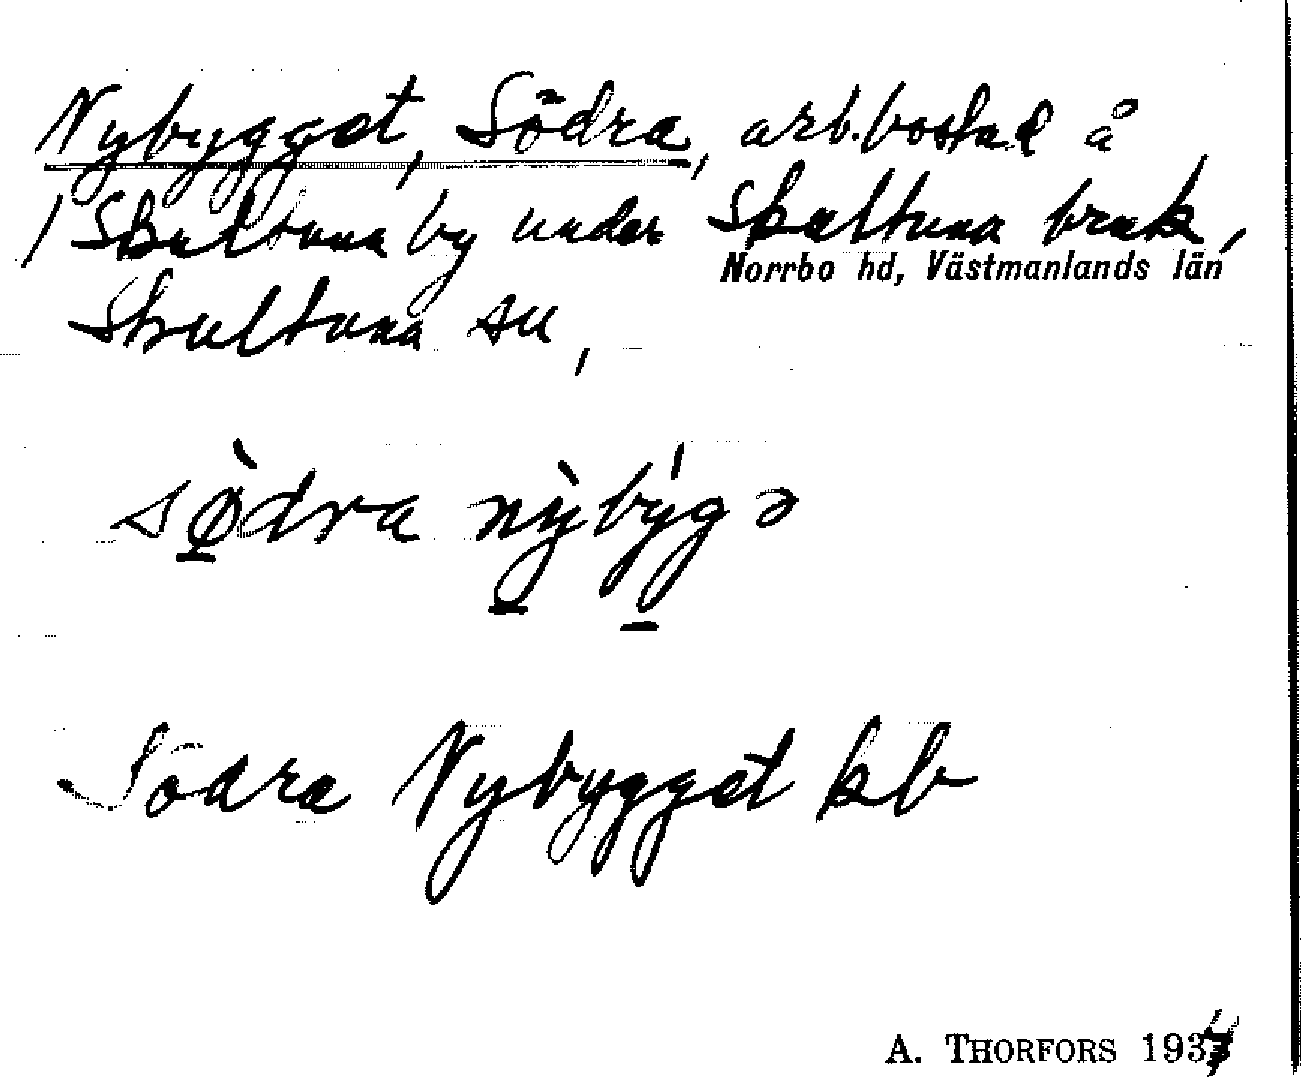 Nybygget, Södra, arb.bostad å
/ Skultuna by under Skultuna bruk,
Norrbo hd, Västmanlands län
Skultuna sn,
sø̱̀dra nỳ̱bý̱gə
Södra Nybygget kb
A. THORFORS 193